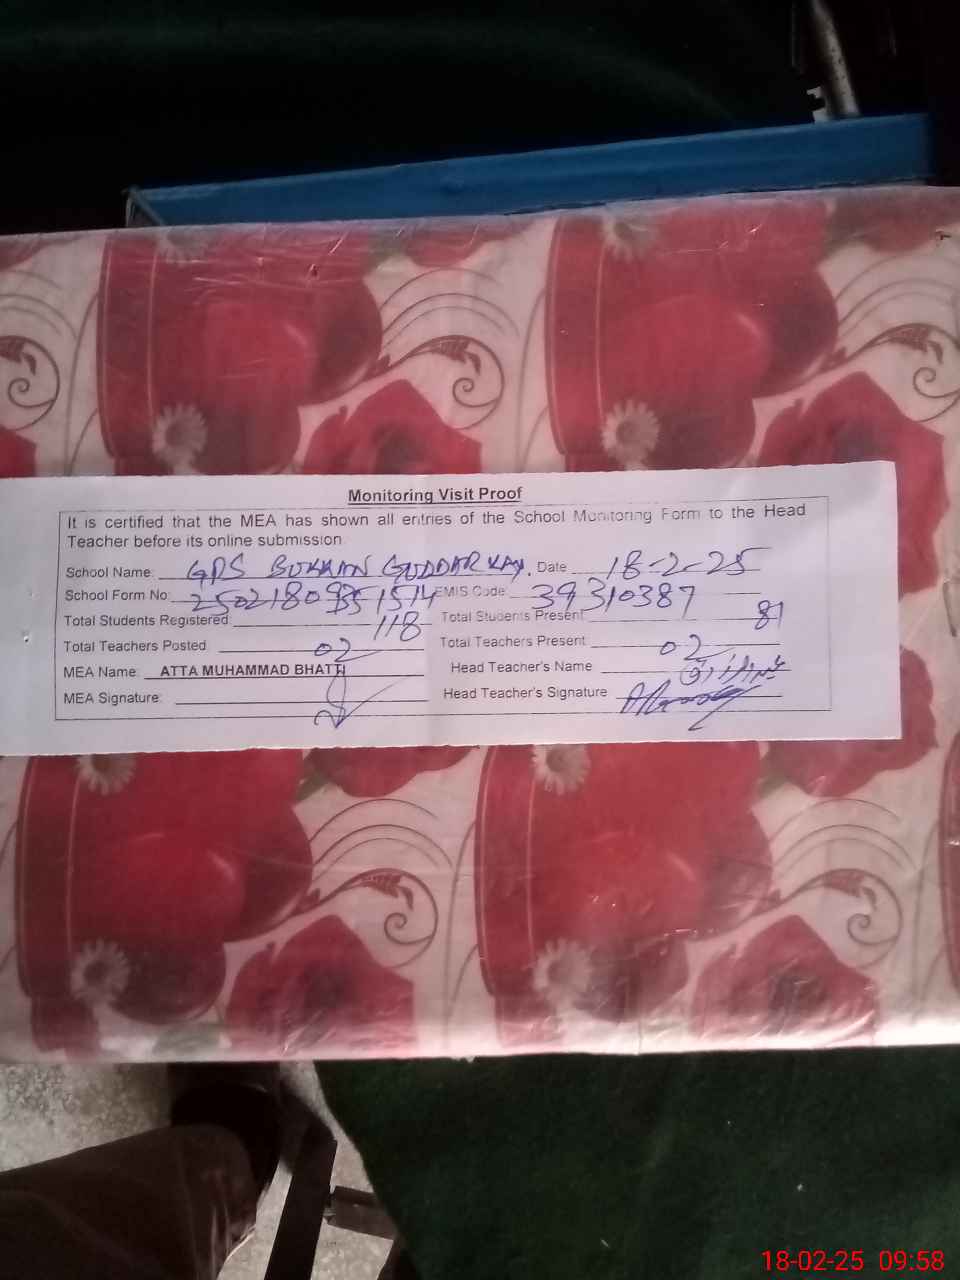 Monitoring Visit Proof
It is certified that the MEA has shown all entries of the School Monitoring Form to the Head
Teacher before its online submission.
School Name: GPS BUKHAN GUDDARKAY. Date 18-2-25
School Form No: EMIS Code: 39310387
Total Students Registered: 118 Total Students Present: 81
Total Teachers Posted 02 Total Teachers Present: 02
MEA Name: ATTA MUHAMMAD BHATTI Head Teacher's Name
MEA Signature: Head Teacher's Signature
18-02-25 09:58